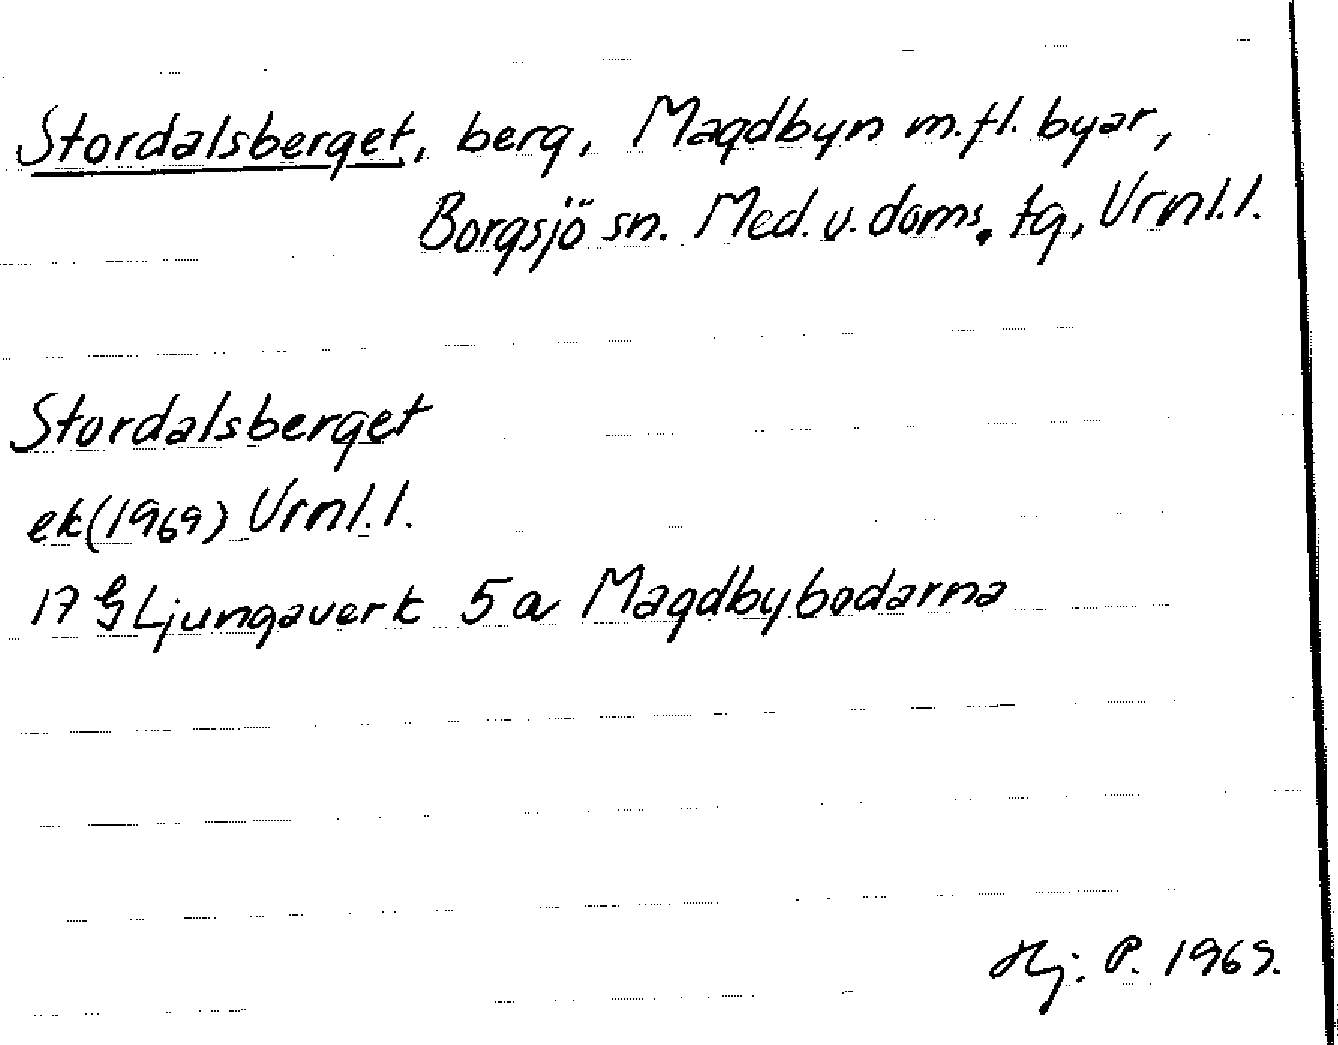 Stordalsberget, berg, Magdbyn m.fl. byar,
Borgsjö sn. Med. v. doms. tg, Vrnl.l.
Stordalsberget
ek (1969) Vrnl.l.
17 G Ljungaverk 5 a Magdbybodarna
Hj: P. 1969.